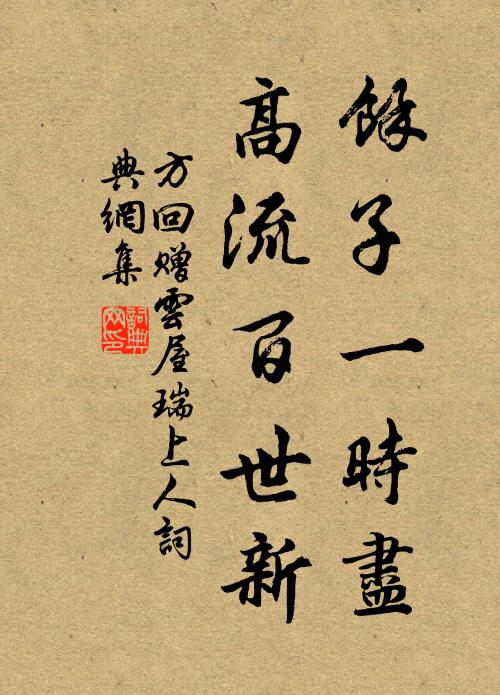 餘子一時盡
高流百世新
方回贈雲屋瑞上人詞
典網集
詞典網印